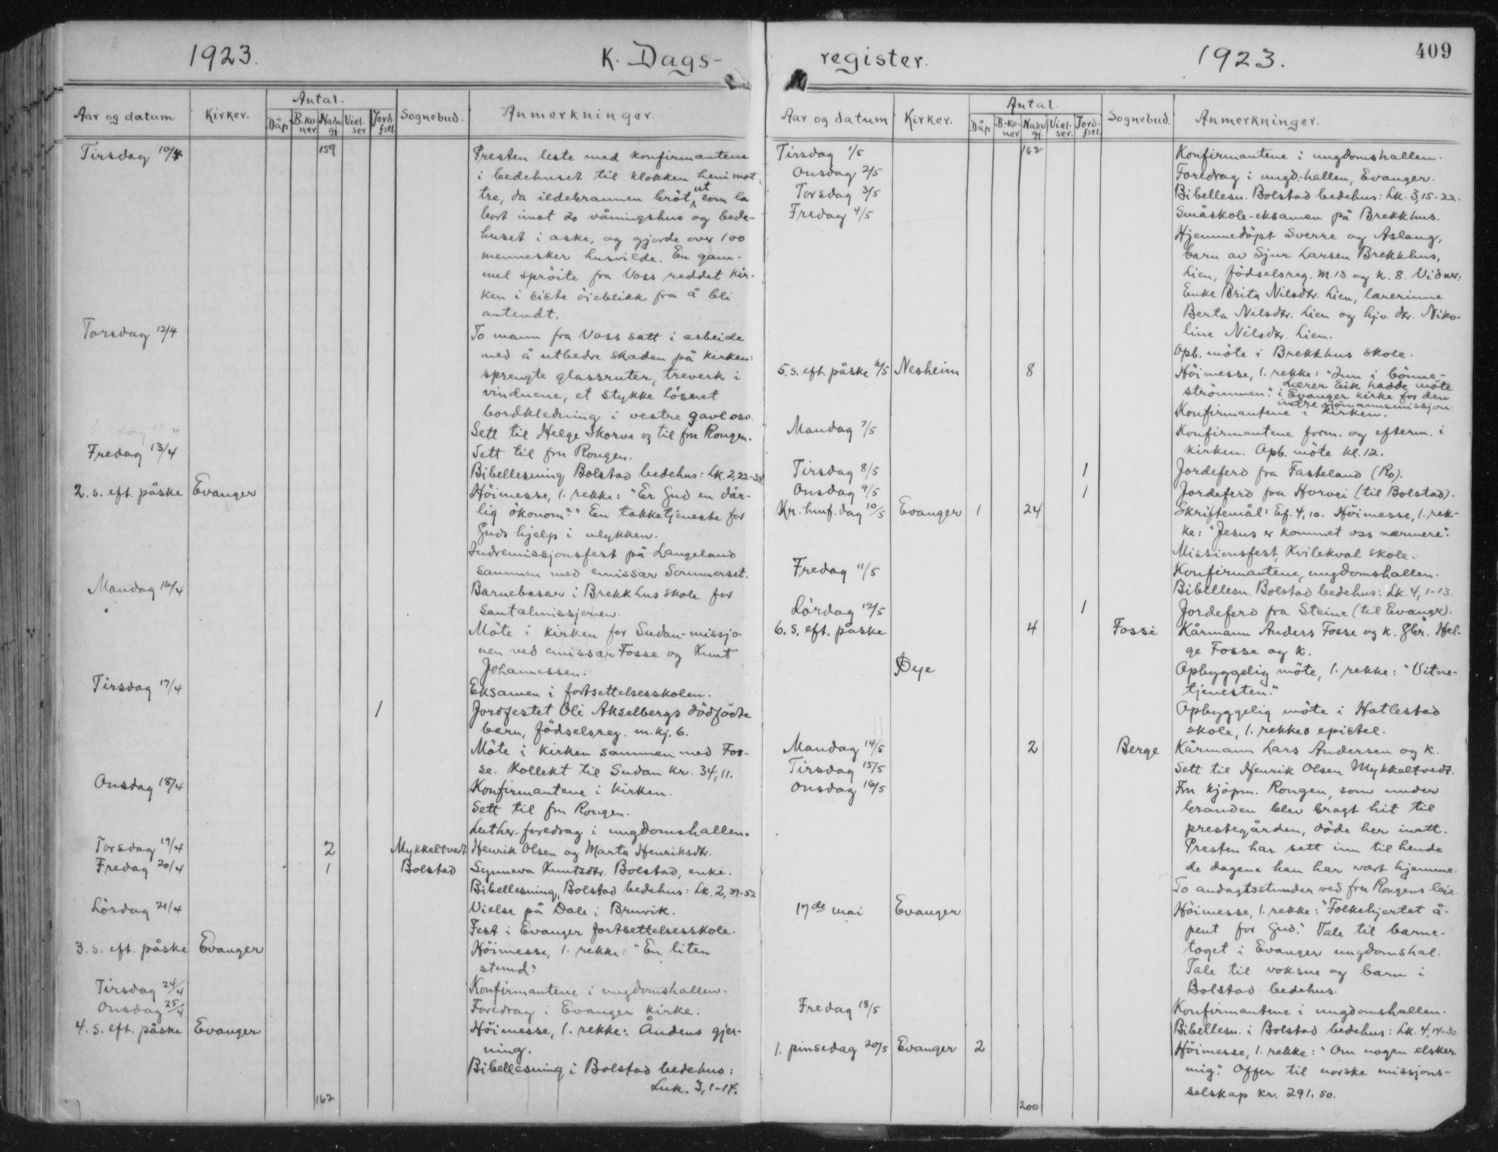 1923.
K. Dags-
Aar og datum Kirker. Antal. Sognebud. Anmerkninger.
Dåp B.ko-ner Nadv. gj. Viel-ser Jord-fest.
Tirsdag 10/4 159 Presten leste med konfirmantene
i bedehuset til klokken henimot
tre, da ildebrannen bröt ut som la
bort imot 20 våningshus og bede-
huset i aske, og gjorde over 100
mennesker husvilde. En gam-
mel spröite fra Voss reddet kir-
ken i siste öieblikk fra å bli
antendt.
Torsdag 12/4 To mann fra Voss satt i arbeide
med å utbedre skaden på kirken:
sprengte glassruter, treverk i
vinduene, et stykke lösnet
bordkledning i vestre gavl osv.
Sett til Helge Skorve og til fru Rongen.
Fredag 13/4 Sett til fru Rongen.
Bibellesning Bolstad bedehus: Lk. 2, 22-38
2. s. eft. påske Evanger Höimesse, 1. rekke: "Er Gud en dår-
lig ökonom?" En takketjeneste for
Guds hjelp i ulykken.
Indremissjonsfest på Langeland
sammen med emissær Sommerset.
Mandag 16/4 Barnebasar i Brekkhus skole for
Santalmissjonen.
Möte i kirken for Sudan-missjo-
nen ved emissær Fosse og Knut
Johannessen.
Tirsdag 17/4 Eksamen i fortsettelsesskolen.
1 Jordfestet Oli Akselbergs dödfödte
barn, födselsreg. m.kj. 6.
Möte i kirken sammen med Fos-
se. Kollekt til Sudan kr. 34,11.
Onsdag 18/4 Konfirmantene i kirken.
Sett til fru Rongen.
Luther-foredrag i ungdomshallen.
Torsdag 19/4 2 Mykkeltvedt Henrik Olsen og Marta Henriksdtr.
Fredag 20/4 1 Bolstad Synneva Knutsdtr. Bolstad, enke.
Bibellesning, Bolstad bedehus: Lk. 2, 39-52
Lördag 21/4 Vielse på Dale i Bruvik.
Fest i Evanger fortsettelsesskole.
3. s. eft. påske Evanger Höimesse, 1. rekke: "En liten
stund".
Tirsdag 24/4 Konfirmantene i ungdomshallen.
Onsdag 25/4 Foredrag i Evanger kirke.
4. s. eft. påske Evanger Höimesse, 1. rekke: Åndens gjer-
ning.
Bibellesning i Bolstad bedehus:
Luk. 3, 1-14.
162
register. 1923. 409
Aar og datum Kirker. Antal. Sognebud. Anmerkninger.
Dåp B.-ko-ner Nadv. gj. Viel-ser. Jord-fest.
Tirsdag 1/5 162 Konfirmantene i ungdomshallen.
Onsdag 2/5 Foredrag i ungd.hallen, Evanger.
Torsdag 3/5 Bibellesn. Bolstad bedehus: Lk. 3, 15-22.
Fredag 4/5 Småskole-eksamen på Brekkhus.
Hjemmedöpt Sverre og Aslaug,
barn av Sjur Larsen Brekkhus,
Lien, födselsreg. m. 13 og k. 8. Vidner:
Enke Brita Nilsdtr. Lien, lærerinne
Berta Nilsdtr. Lien og hjv. dtr. Niko-
line Nilsdtr. Lien.
Opb. möte i Brekkhus skole.
5. s. eft. påske 6/5 Nesheim 8 Höimesse, 1. rekke: "Inn i bönne-
strömmen." Lærer Eik hadde möte
i Evanger kirke for den
indre sjömannsmissjon
Konfirmantene i kirken.
Mandag 7/5 Konfirmantene form. og efterm. i
kirken. Opb. möte kl. 12.
Tirsdag 8/5 1 Jordeferd fra Fasteland (Ro).
Onsdag 9/5 1 Jordeferd fra Horvei (til Bolstad).
Kr. himf. dag 10/5 Evanger 1 24 Skriftemål: Ef. 4, 10. Höimesse, 1. rek-
ke: "Jesus er kommet oss nærmere".
Missionsfest Kvilekval skole.
Fredag 11/5 Konfirmantene, ungdomshallen.
Bibellesn. Bolstad bedehus: Lk. 4, 1-13.
Lördag 12/5 1 Jordeferd fra Steine (til Evanger).
6. s. eft. påske 4 Fosse Kårmann Anders Fosse og k. Gbr. Hel-
ge Fosse og k.
Öye Opbyggelig möte, 1. rekke: "Vitne-
tjenesten."
Opbyggelig möte i Hatlestad
skole, 1. rekkes epistel.
Mandag 14/5 2 Berge Kårmann Lars Andersen og k.
Tirsdag 15/5 Sett til Henrik Olsen Mykkeltvedt.
Onsdag 16/5 Fru kjöpm. Rongen, som under
branden blev bragt hit til
prestegården, döde her inatt.
Presten har sett inn til hende
de dagene han har vært hjemme.
To andagtsstunder ved fru Rongens leie
17de mai Evanger Höimesse, 1. rekke: "Folkehjertet å-
pent for Gud." Tale til barne-
toget i Evanger ungdomshal.
Tale til voksne og barn i
Bolstad bedehus.
Fredag 18/5 Konfirmantene i ungdomshallen.
Bibellesn. i Bolstad bedehus: Lk. 4, 14-30
1. pinsedag 20/5 Evanger 2 Höimesse, 1. rekke: "Om nogen elsker
mig". Offer til norske missjons-
selskap kr. 291.50.
200